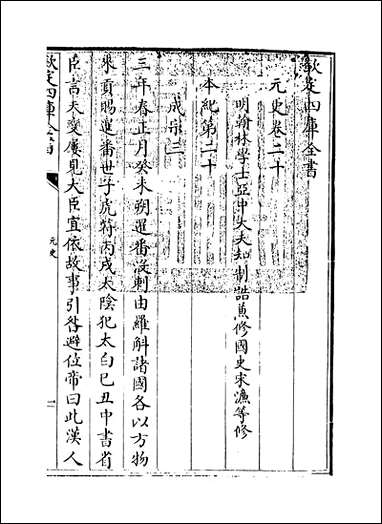 欽定四庫全書
元史卷二十
明翰林學士亞中大夫知制誥兼修國史宋濂等修
本紀第二十
成宗三
三年春正月癸未朔暹番没剌由羅斛諸國各以方物
來貢賜暹番世子虎符丙戌太陰犯太白己丑中書省
臣言天變屢見大臣宜依故事引咎避位帝曰此漢人
欽定四庫全書
元史